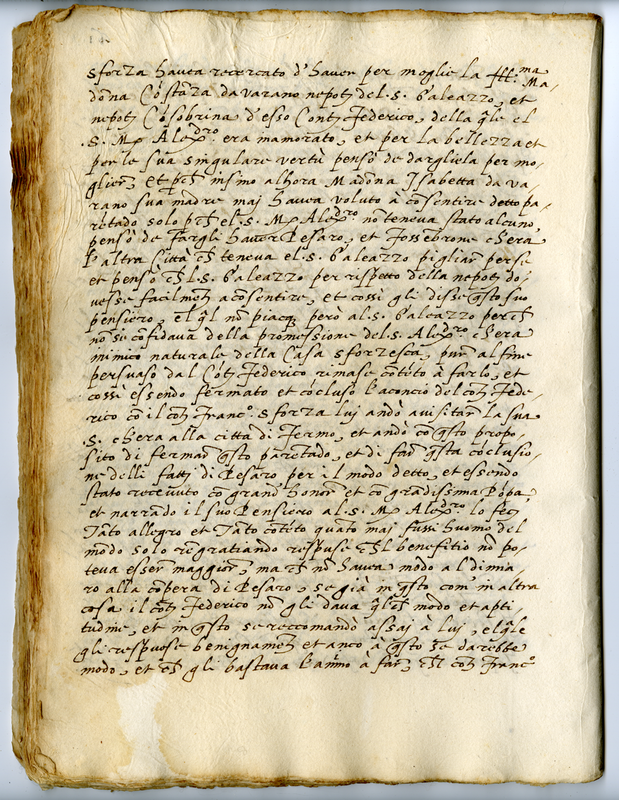 Sforza havea recercato d'haver per moglie la Ill.ma Ma
dõna Cõstãza da Varano nepotẽ del .S. Galeazzo, et
nepotẽ Cõsobrina d'esso Contẽ Federico, della q̃le el
.S. M. Alex.dro era inamorato, et per la bellezza et
per le sua singulare vertù pensò de dargliela per mo-
glierẽ, et pchẽ insino alhora Madõna Isabetta da Va-
rano sua madre mai havea voluto à cõsentire detto pa-
rẽtado solo pchẽ el .S. M. Alex.dro nõ teneva stato alcuno,
pensò de fargli haver Pesaro, et Fossẽbrone ch'era
l'altra Città chẽ teneva el .S. Galeazzo pigliar per se
et pensò chẽl .S. Galeazzo per rispetto della nepotẽ do-
vesse facilmẽtẽ acõsentire, et cossì gli disse q̃sto suo
pensiero, el q̃l nõ piacq̃ però al .S. Galeazzo perchẽ
nõ se cõfidava della promessione del .S. Alex.dro ch'era
inimico naturale della Casa Sforzesca, pur al fine
persuaso dal Cõtẽ Federico rimase cõtẽto à farlo, et
cossì essendo fermato et cõcluso l'aconcio del cõtẽ Fede-
rico cõ il cõtẽ Franc.o Sforza lui andò a visitar la sua
.S. ch'era alla città di Fermo, et andò cõ q̃sto propo-
sito di fermar q̃sto parẽtado, et di far q̃sta cõclusio-
ne delli fatti di Pesaro per il modo detto, et essendo
stato recevuto cõ grand'honor et cõ grãdissima Põpa,
et narrado il suo Pensiero al .S. M. Alex.dro lo fecẽ
tãto allegro et tãto cõtẽto quãto mai fusse huomo del
mõdo solo regratiando respuse chẽl benefitio nõ po-
teva esser maggior, ma chẽ nõ havea modo al dina-
ro alla cõpera di Pesaro, se già in q̃sto com'in altra
cosa il cõtẽ Federico nõ gle dava q̃lchẽ modo et apti-
tudine, et in q̃sto se reccomandò assai à lui, el q̃le
gli respuose benignamẽtẽ et anco à q̃sto se darebbe
modo, et chẽ gli bastava l'animo à far, chẽl cõtẽ Franc.o